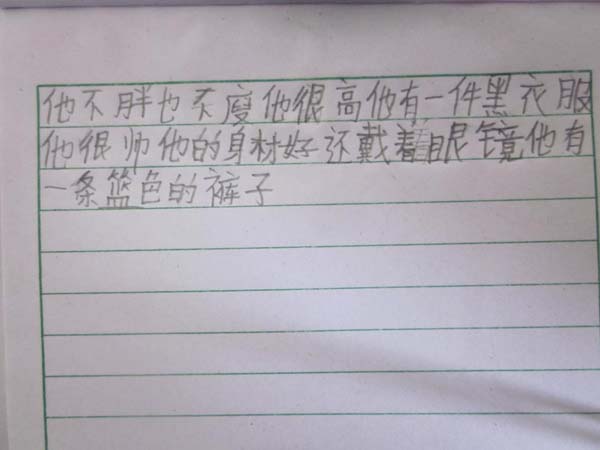 他不胖也不瘦他很高他有一件黑衣服
他很帅他的身材好还戴着眼镜他有
一条篮色的裤子